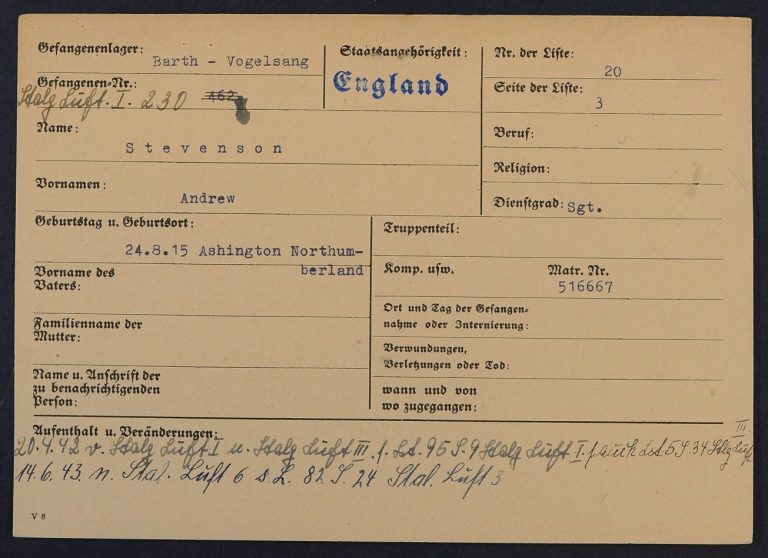 Gefangenenlager: Barth - Vogelsang
Gefangenen-Nr.: Stalg Luft. I. 230 462
Name:
Stevenson
Vornamen:
Andrew
Geburtstag u. Geburtsort:
24.8.15 Ashington Northum-
berland
Vorname des
Vaters:
Familienname der
Mutter:
Name u. Anschrift der
zu benachrichtigenden
Person:
Staatsangehörigkeit:
England
Nr. der Liste:
20
Seite der Liste:
3
Beruf:
Religion:
Dienstgrad: Sgt.
Truppenteil:
Komp. usw. Matr. Nr.
516667
Ort und Tag der Gefangen-
nahme oder Internierung:
Verwundungen,
Verletzungen oder Tod:
wann und von
wo zugegangen:
Aufenthalt u. Veränderungen:
20.4.42 v. Stalg Luft I n. Stalg Luft III f. Lst. 95 S. 9 Stalg Luft I. f. auch Lst 5 S. 34 Stlg Luft III
14.6.43. n. Stal. Luft 6 s. L. 82 S. 24 Stal. Luft 3
V 8